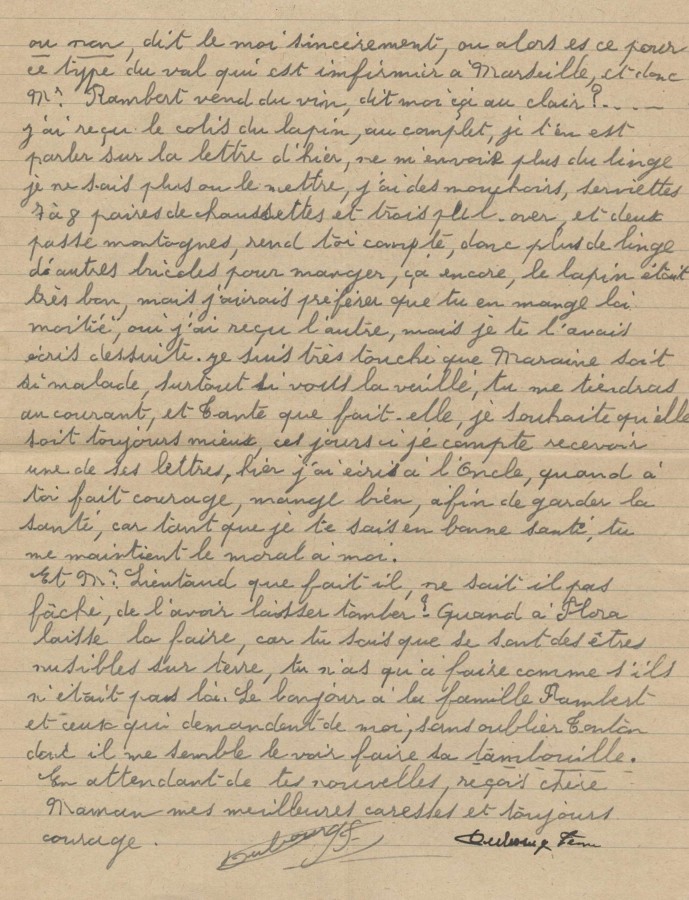 ou non, dit le moi sincèrement, ou alors es ce pour
ce type du val qui est infirmier à Marseille, et donc
Mr. Rambert vend du vin, dit moi çà au clair?....
j'ai reçu le colis du lapin, au complet, je t'en est
parler sur la lettre d'hier, ne m'envois plus du linge
je ne sais plus ou le mettre, j'ai des mouchoirs, serviettes
7 à 8 paires de chaussettes et trois pull-over, et deux
passe montagnes, rend toi compte, donc plus de linge
d'autres bricoles pour manger, çà encore, le lapin était
très bon, mais j'airais préférer que tu en mange la
moitié, oui j'ai reçu l'autre, mais je te l'avais
écris dessuite. je suis très touché que Maraine soit
si malade, surtout si vous la veillé, tu me tiendras
au courant, et Tante que fait-elle, je souhaite qu'elle
soit toujours mieux, ces jours ci je compte recevoir
une de ses lettres, hier j'ai écris à l'Oncle, quand à
toi fait courage, mange bien, afin de garder la
santé, car tant que je te sais en bonne santé, tu
me maintient le moral à moi.
Et Mr. Lieutaud que fait il, ne sait il pas
fâché, de l'avoir laisser tomber? Quand à Flora
laisse la faire, car tu sais que se sont des êtres
nusibles sur terre, tu n'as qu'à faire comme s'ils
n'était pas là. Le bonjour à la famille Rambert
et ceux qui demandent de moi, sans oublier Tonton
dont il me semble le voir faire sa tambouille.
En attendant de tes nouvelles, reçois chère
Maman mes meilleures caresses et toujours
courage. Dubourg